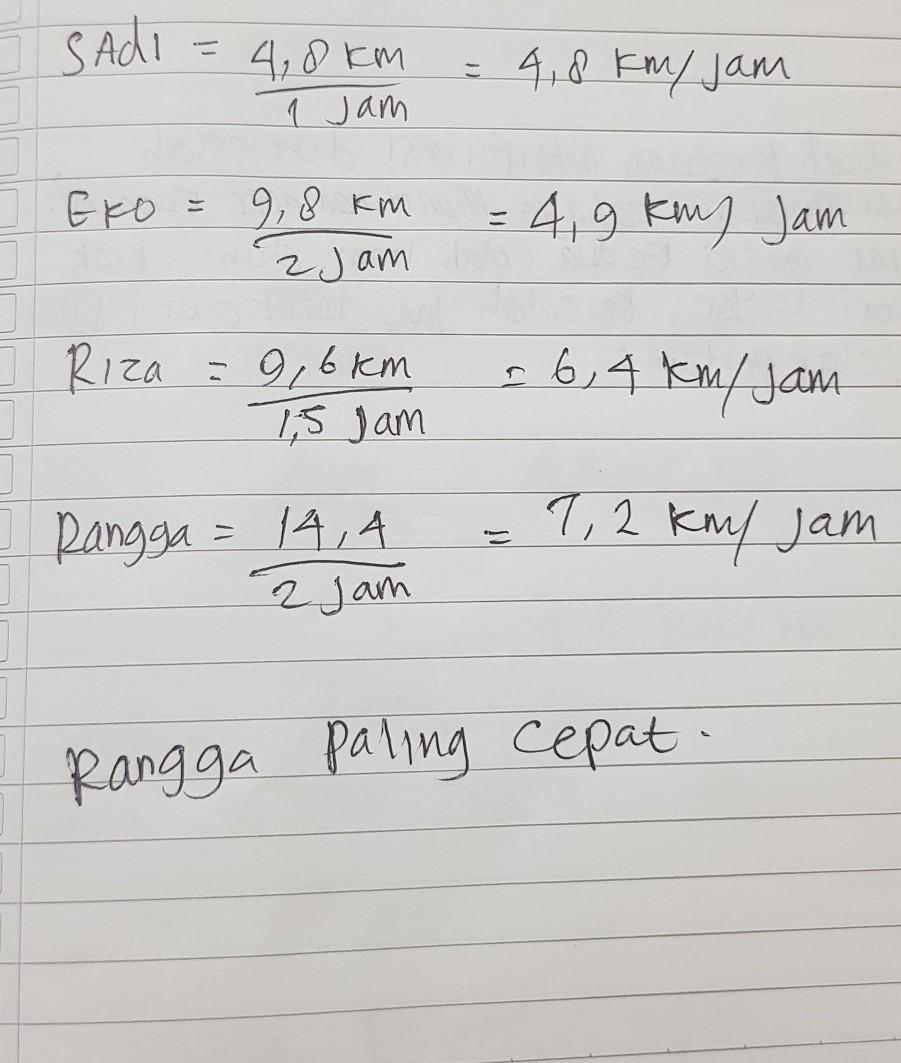 SAdi = 4,8 km / 1 Jam = 4,8 km/jam
Eko = 9,8 km / 2 Jam = 4,9 km/Jam
Riza = 9,6 km / 1,5 Jam = 6,4 km/jam
Rangga = 14,4 / 2 Jam = 7,2 km/Jam
Rangga Paling Cepat.